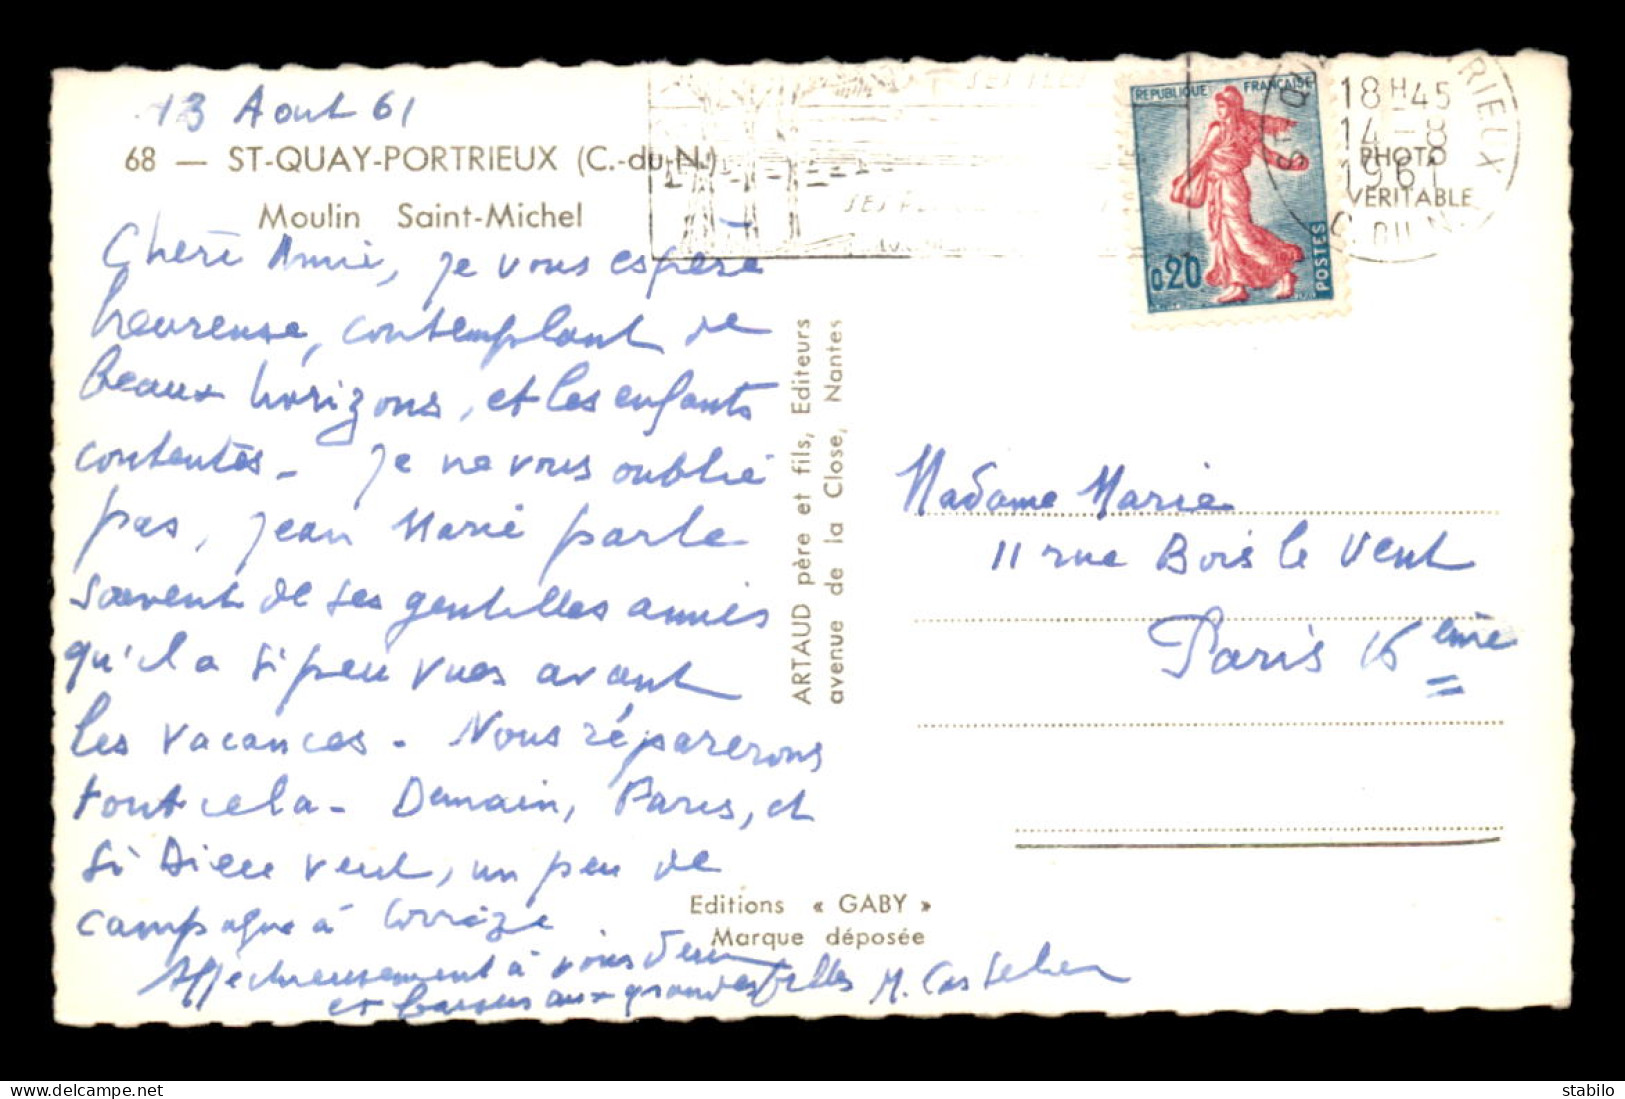 13 Aout 61
68 — ST-QUAY-PORTRIEUX (C.-du-N.)
Moulin Saint-Michel
Chère Amie, je vous espère
heureuse, contemplant de
beaux horizons, et les enfants
contentes - Je ne vous oublie
pas, Jean Marie parle
souvent de ses gentilles amies
qu'il a si peu vues avant
les vacances - Nous réparerons
tout cela - Demain, Paris, et
si Dieu veut, un peu de
campagne à Corrèze
Affectueusement à vous deux
et baisers aux grandes filles M.
ARTAUD père et fils, Editeurs
avenue de la Close, Nantes
Editions « GABY »
Marque déposée
REPUBLIQUE FRANÇAISE
0.20
POSTES
18H45
14-8
1961
PHOTO
VERITABLE
Madame Marie
11 rue Bois le Vent
Paris 16ème
delcampe.net
stabilo